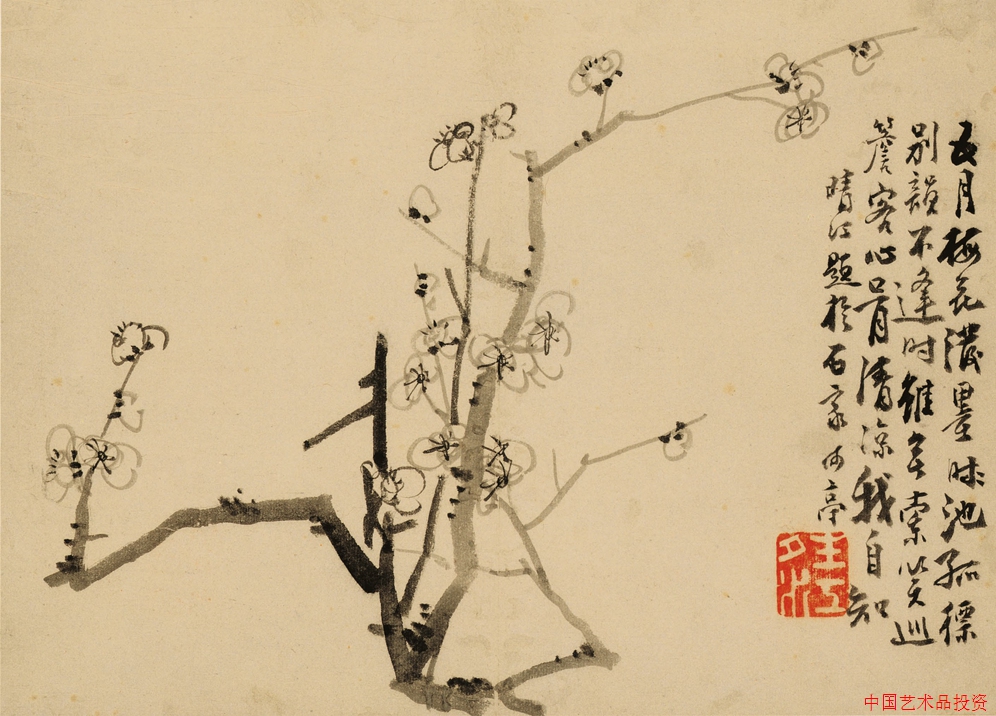 五月梅花潑墨池孤標
別韻不逢時雖無索笑巡
簷客心骨清涼我自知
晴江題於石家河亭
中国艺术品投资